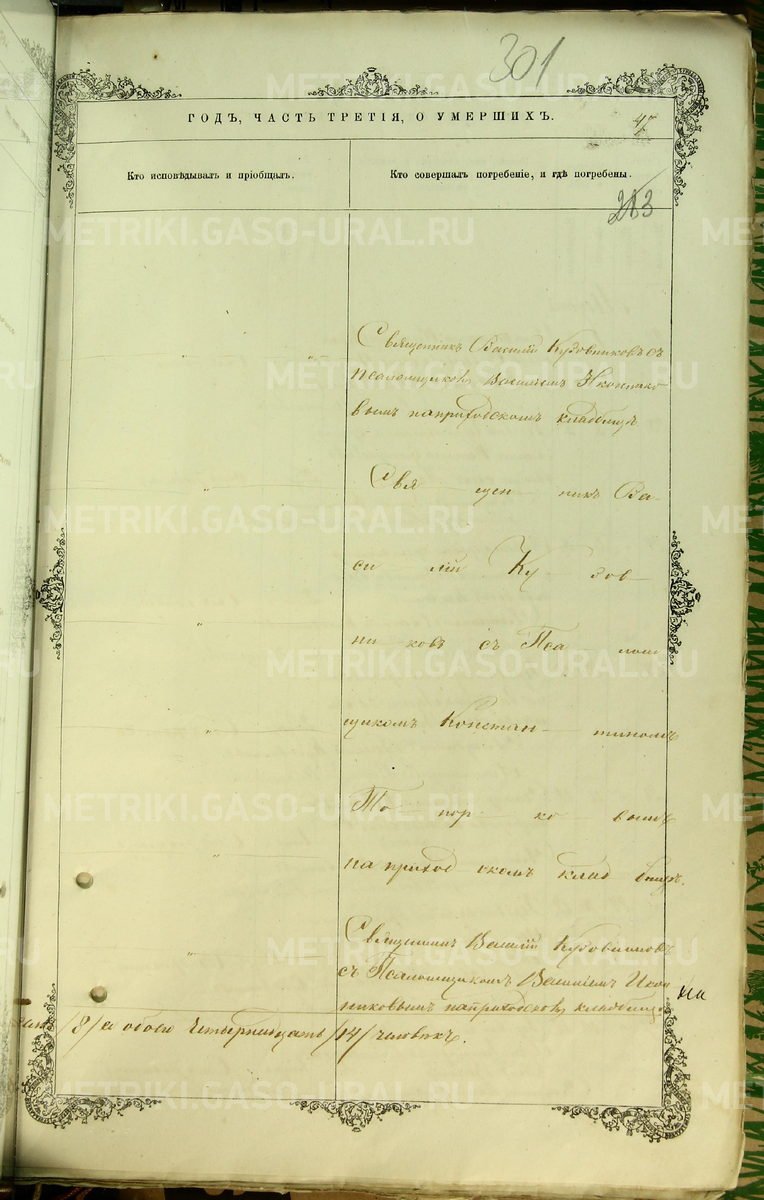 301
ГОДЪ, ЧАСТЬ ТРЕТІЯ, О УМЕРШИХЪ.
47
Кто исповѣдывалъ и пріобщалъ.
Кто совершалъ погребеніе, и гдѣ погребены.
213
METRIKI.GASO-URAL.RU
Священникъ Василій Кудовниковъ съ
Псаломщикомъ Василіемъ Иконнико-
вымъ наприходскомъ кладбищѣ
Свя щен никъ Ва-
си лій Ку дов-
ни ковъ съ Пса лом
щикомъ Констан- тиномъ
То пор ко вымъ
на приход скомъ клад бищѣ.
Священникъ Василій Кудовниковъ
съ Псаломщикомъ Василіемъ Икон
никовымъ наприходскомъ кладбищѣ
/8/ а обоего Четырнадцать /14/ человѣкъ.